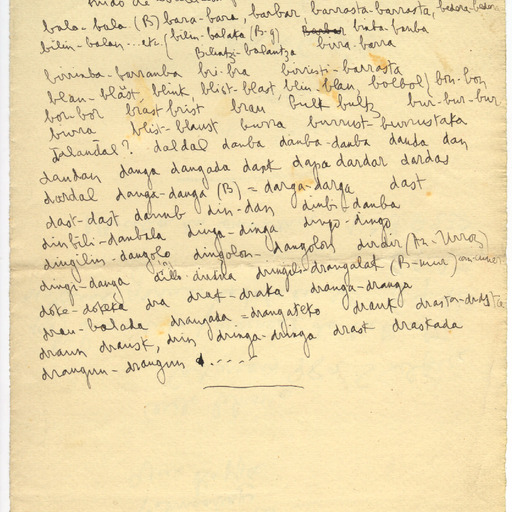 bala-bala (B) bara-bara, barbar, barrasta-barrasta,
bilin-balan...etc (bilin-balaka (B-g) biata-banba
Bilintzi-balantza birra-barra
birrinba-barranba bri-bra birristi-barrasta
blau-blást, blink blist-blast, blin blan, bolbol (bon-bon
bor-bor brast-brist brau bult bultz bur-bur-bur
burra blist-blaust burra burrust-burrustaka
Jalandal? daldal danba danba-danba danda dan
dandan danga dangada dank dapa dardar dardas
danga-danga (B) = darga-darga dast
dast-dast din-dan dinbi-danba
dinbili-danbala dinga-dinga dingo-dingo
dingilin-dangolo dingolon-dangolon dirdir
dingi-danga dringili-drangalak (B-mur)
doke-dokeka dra drak-draka dranga-dranga
drau-balada drangada = drangateko drank drasta-drasta
draun drausk, drin dringa-dringa drast draskada
drangun-drangun .----